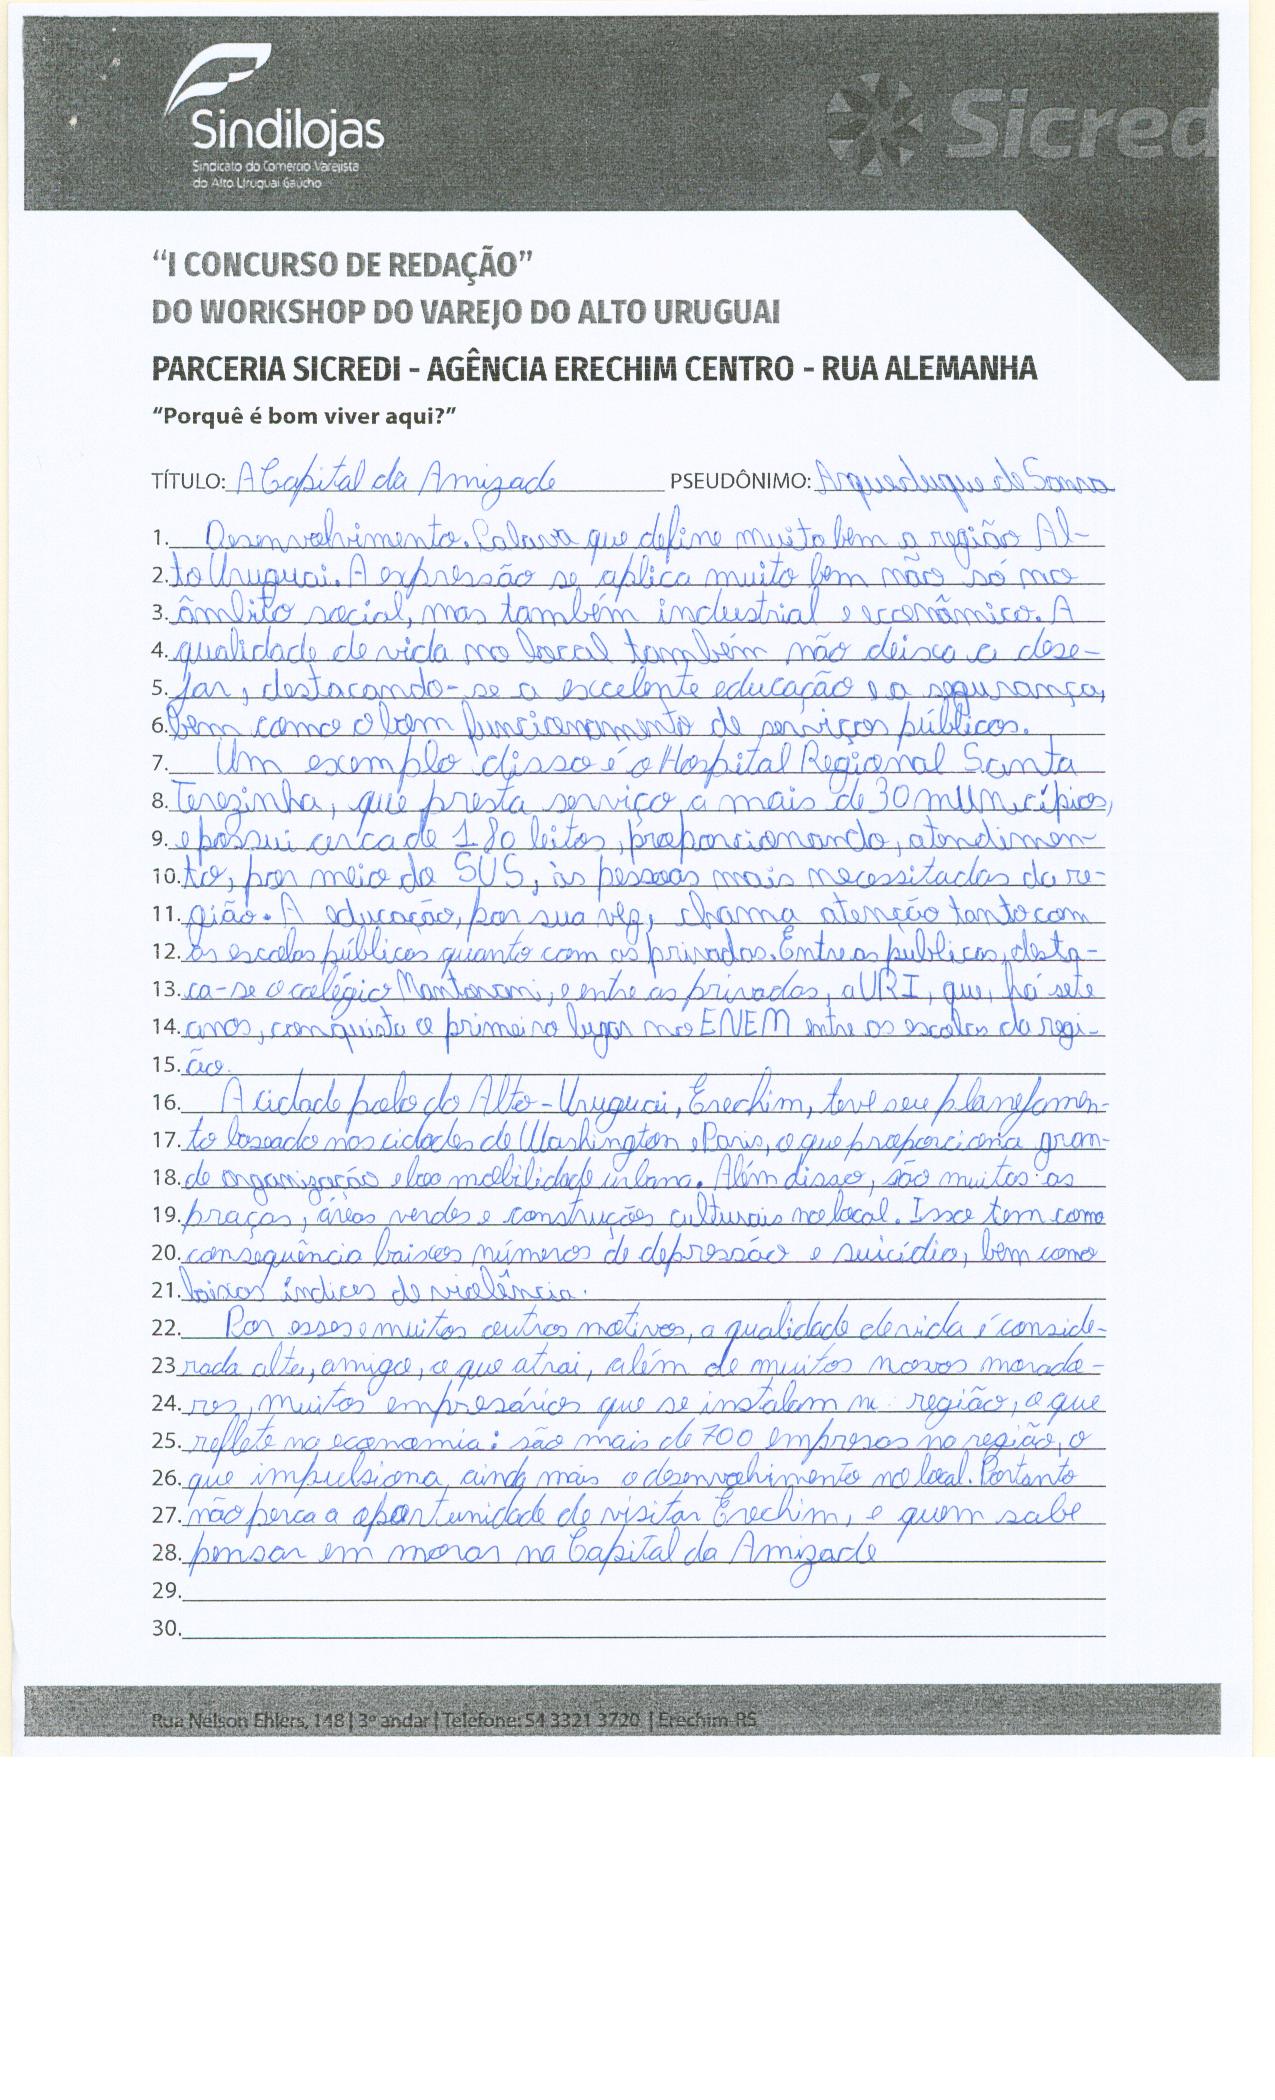 Sindilojas
Sindicato do Comercio Varejista
do Alto Uruguai Gaúcho
Sicred
“I CONCURSO DE REDAÇÃO”
DO WORKSHOP DO VAREJO DO ALTO URUGUAI
PARCERIA SICREDI - AGÊNCIA ERECHIM CENTRO - RUA ALEMANHA
“Porquê é bom viver aqui?”
TÍTULO: A Capital da Amizade PSEUDÔNIMO: Arqueduque de
1. Desenvolvimento. Palavra que define muito bem a região Al-
2. to Uruguai. A expressão se aplica muito bem não só no
3. âmbito social, mas também industrial e econômico. A
4. qualidade de vida no local também não deixa a dese-
5. jar, destacando-se a excelente educação e a segurança,
6. bem como o bom funcionamento de serviços públicos.
7. Um exemplo disso é o Hospital Regional Santa
8. Terezinha, que presta serviço a mais de 30 municípios,
9. e possui cerca de 180 leitos, proporcionando, atendimen-
10. to, por meio do SUS, às pessoas mais necessitadas da re-
11. gião. A educação, por sua vez, chama atenção tanto com
12. as escolas públicas quanto com as privadas. Entre as publicas, desta-
13. ca-se o colégio Mantovani, e entre as privadas, a URI, que, há sete
14. anos, conquista o primeiro lugar no ENEM entre as escolas da regi-
15. ão.
16. A cidade polo do Alto-Uruguai, Erechim, teve seu planejamen-
17. to baseado nas cidades de Washington e Paris, o que proporciona gran-
18. de organização e boa mobilidade urbana. Além disso, são muitos as
19. praças, áreas verdes e construções culturais no local. Isso tem como
20. consequência baixos números de depressão e suicídio, bem como
21. baixos índices de violência.
22. Por esses e muitos outros motivos, a qualidade de vida é conside-
23 rada alta, amigo, o que atrai, além de muitos novos morado-
24. res, muitos empresários que se instalam na região, o que
25. reflete na economia: são mais de 700 empresas na região, o
26. que impulsiona, ainda mais o desenvolvimento no local. Portanto
27. não perca a oportunidade de visitar Erechim, e quem sabe
28. pensar em morar na Capital da Amizade
29.
30.
Rua Nelson Ehlers, 148 | 3º andar | Telefone: 54 3321 3720 | Erechim-RS